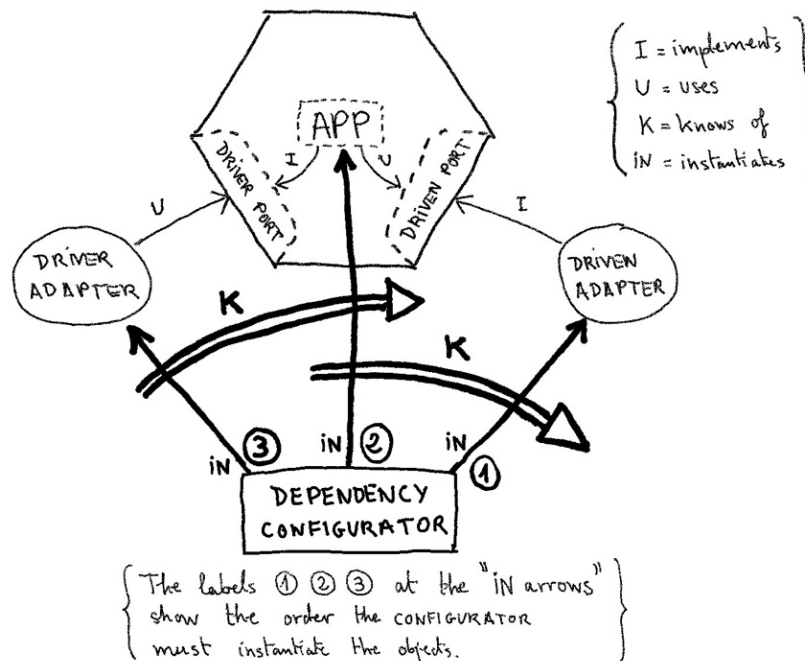 I = implements
U = uses
K = knows of
iN = instantiates
APP
I
U
DRIVER PORT
DRIVEN PORT
U
I
DRIVER
ADAPTER
DRIVEN
ADAPTER
K
K
iN
3
iN
2
iN
1
DEPENDENCY
CONFIGURATOR
The labels 1 2 3 at the "iN arrows"
show the order the CONFIGURATOR
must instantiate the objects.